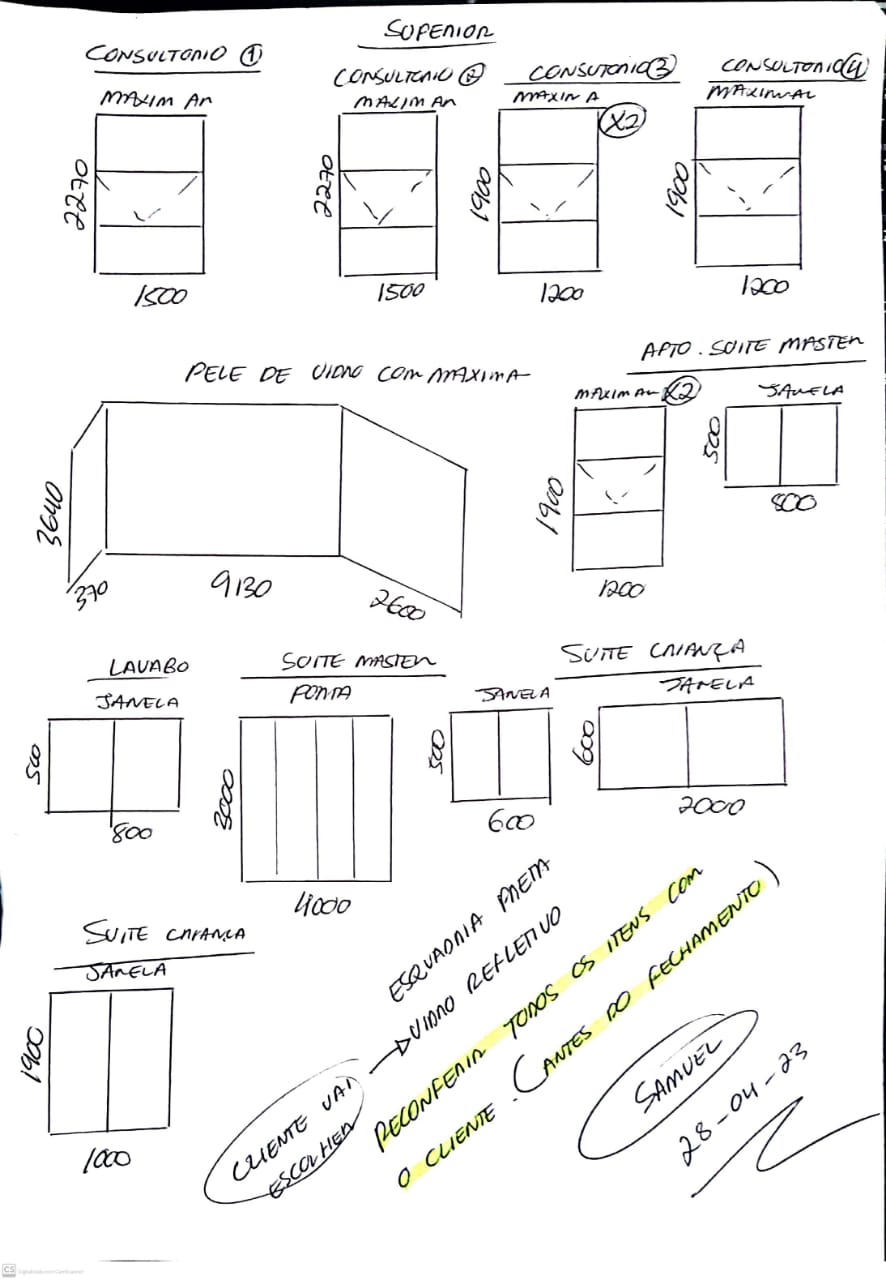 SUPERIOR
CONSULTORIO 1
MAXIM AR
2270
1500
CONSULTORIO 2
MAXIM AR
2270
1500
CONSUTORIO 3
MAXIM A
X2
1900
1200
CONSULTORIO 4
MAXIM AR
1900
1200
PELE DE VIDRO COM MAXIMA
3640
370
9130
2600
APTO. SUITE MASTER
MAXIM AR X2
1900
1200
JANELA
500
800
LAVABO
JANELA
500
800
SUITE MASTER
PORTA
3000
4000
JANELA
500
600
SUITE CRIANÇA
JANELA
600
2000
SUITE CRIANCA
JANELA
1900
1000
ESQUADRIA PRETA
VIDRO REFLETIVO
CLIENTE VAI
ESCOLHER
RECONFERIR TODOS OS ITENS COM
O CLIENTE. (ANTES DO FECHAMENTO)
SAMUEL
28-04-23
CS Digitalizado com CamScanner